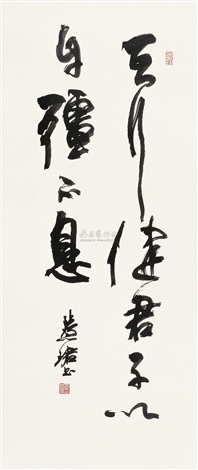 天行健君子以
自彊不息